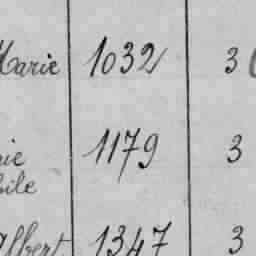 Marie 1032 3
1179 3
Albert 1347 3